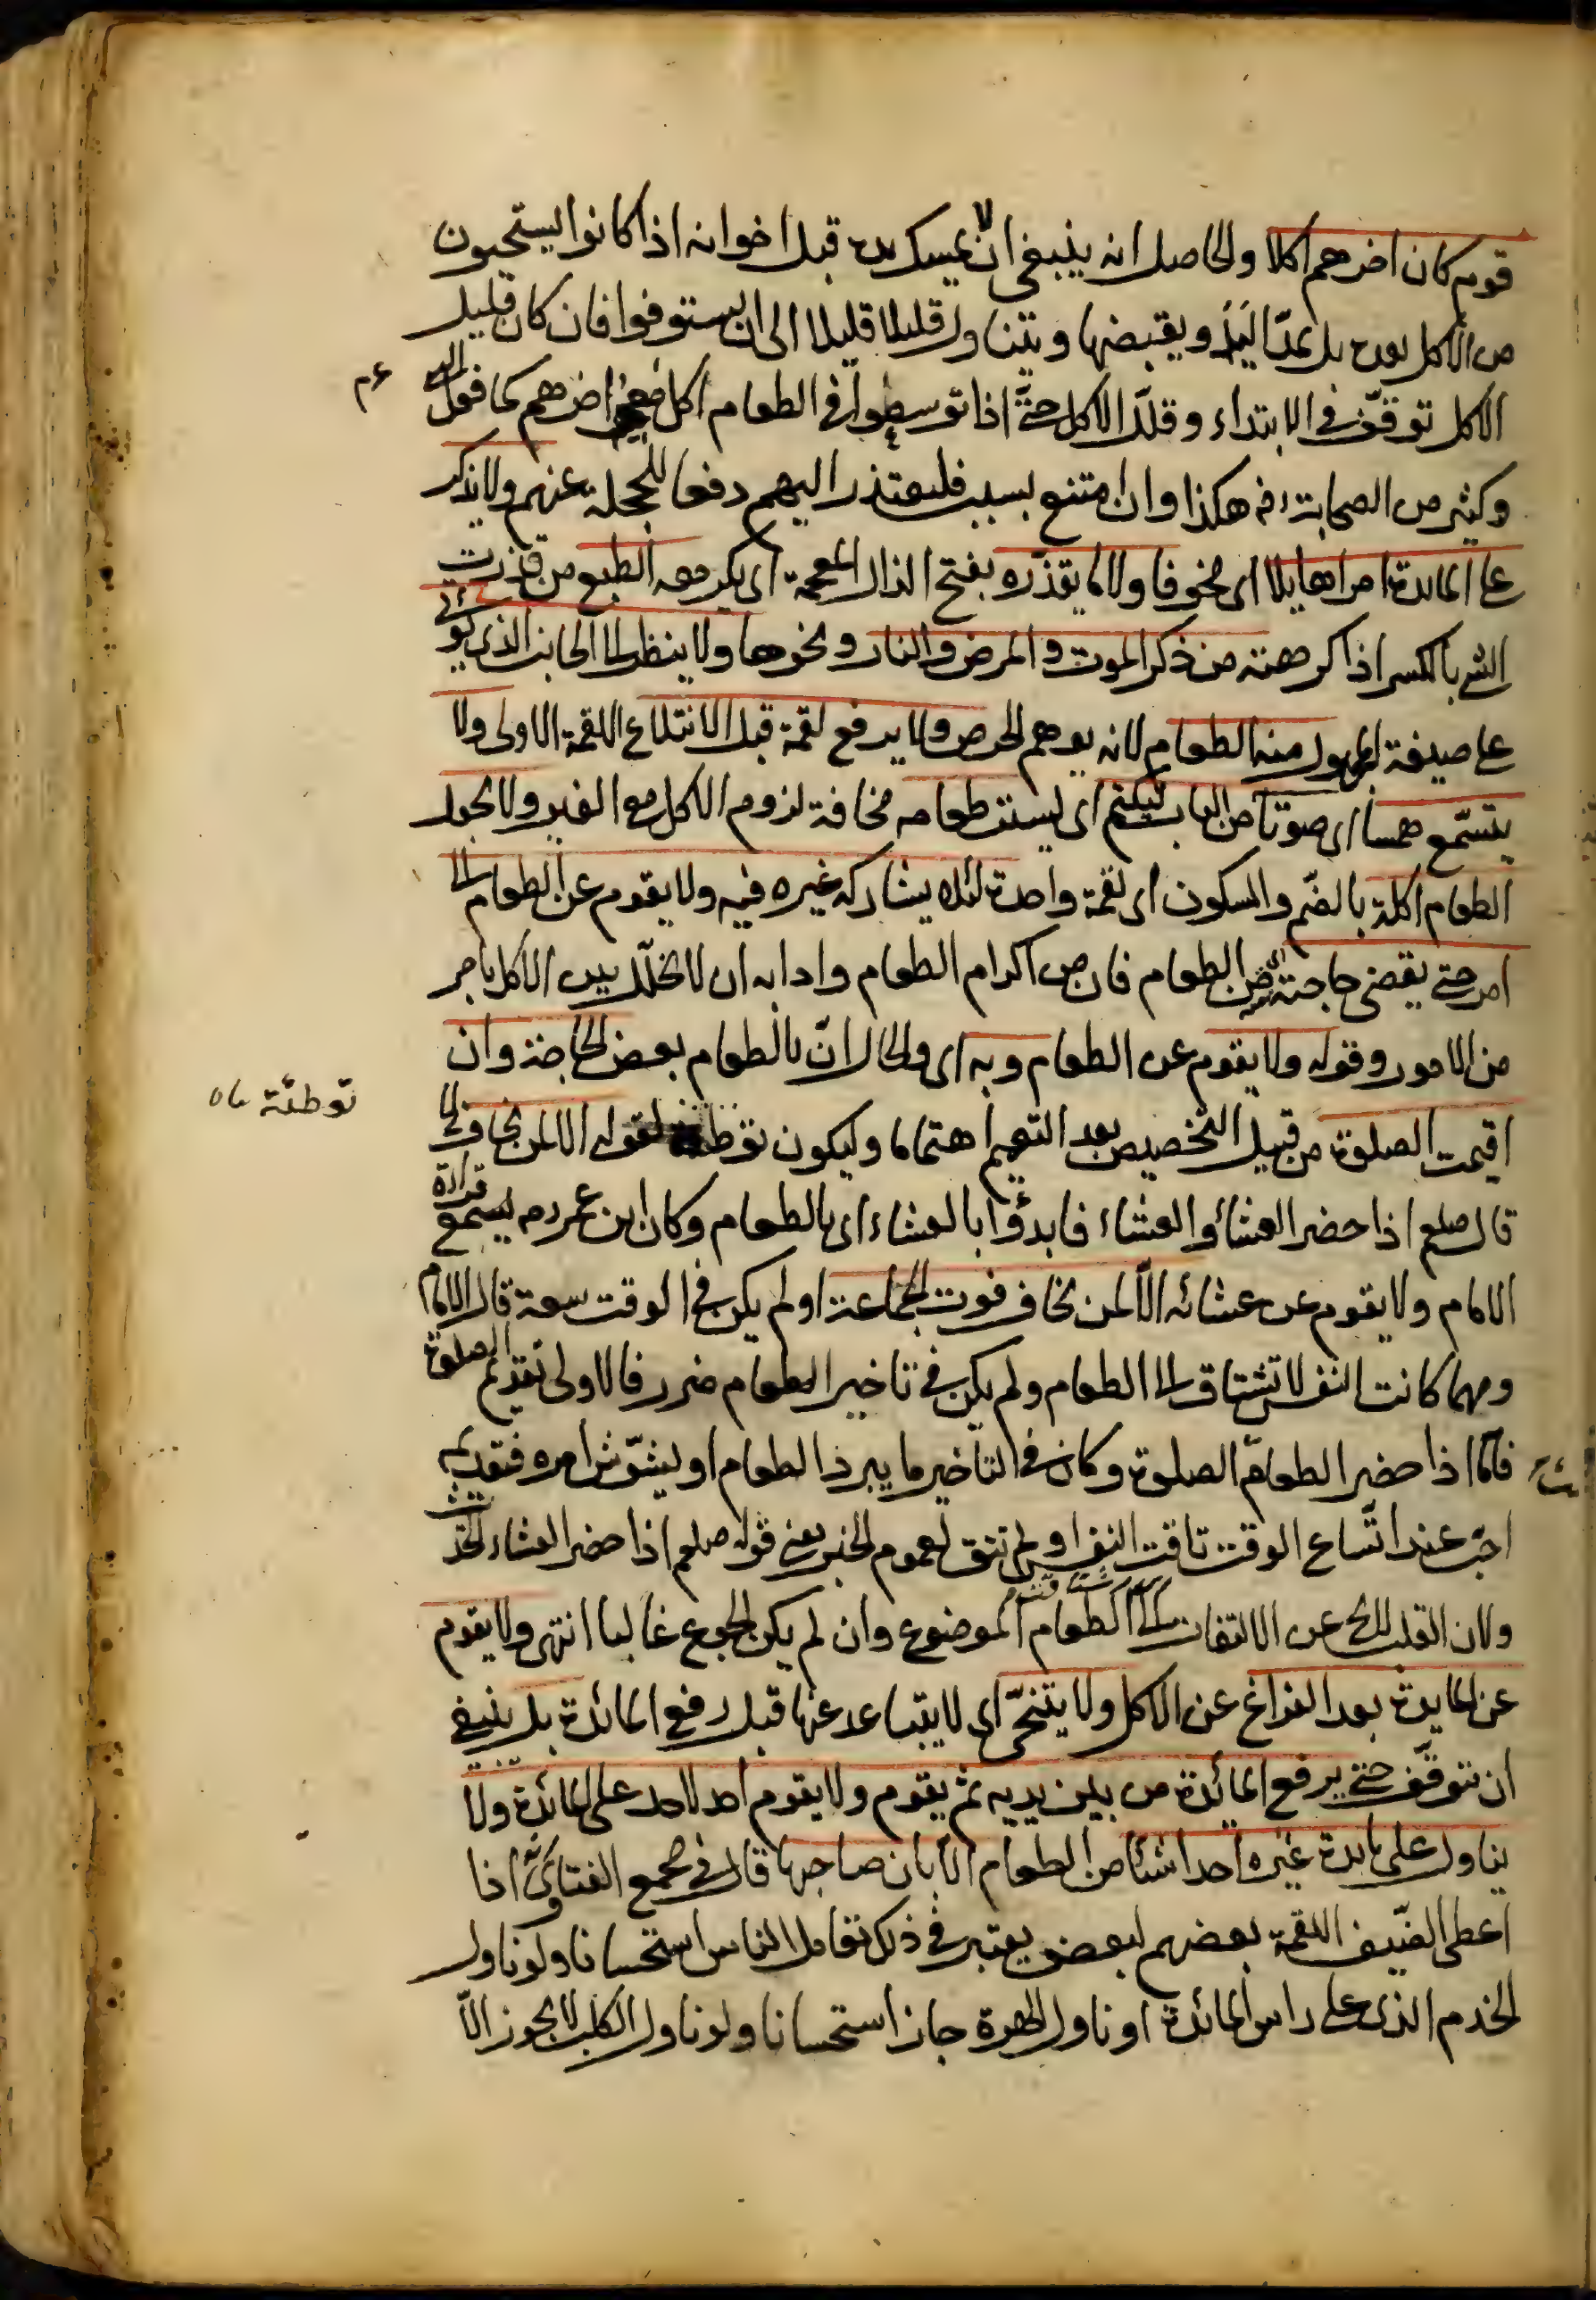 قوم كان اخرهم اكلا والحاصل انه ينبغي ان لا يمسك يده قبل اخوانه اذا كانوا يستحيون
من الاكل بعده بل يمدّ اليَدَ ويقبضها ويتناول قليلا قليلا الى ان يستوفوا فان كان قليل
الاكل توقّف في الابتداء وقلّل الاكل حتّى اذا توسطوا في الطعام اكل معهم اخرهم كما فعل النبي عم
وكثير من الصحابة رض هكذا وان امتنع بسبب فليعتذر اليهم دفعا للخجلة عنهم ولا يذكر
على المايدة امرا هايلا اى مخوفا ولا ما يقذره بفتح الذال المعجمة اى يكرهه الطبع من قذرت
الشئ بالكسر اذا كرهته من ذكر الموت والمرض والنار ونحوها ولا ينظر الى الجانب الذى يؤتى
على صيغة المجهول منه الطعام لانه يوهم الحرص ولا يرفع لقمة قبل الابتلاع اللقمة الاولى ولا
يتسمّع همسا اى صوتا من الباب ليكتم اى يستر طعامه مخافة لزوم الاكل مع الغير ولا يجعل
الطعام اكلة بالضّم والسكون اى لقمة واحدة لئلا يشاركه غيره فيه ولا يقوم عن الطعام الى
امر حتى يقضى حاجته من الطعام فان من اكرام الطعام وادابه ان لا يخلّل بين الاكل بامر
من الامور وقوله ولا يقوم عن الطعام وبه اى والحال انّ بالطعام بعض الحاجة وان
اقيمت الصلوة من قبيل التخصيص بعد التعميم اهتماما وليكون توطئة لقوله الا لمن يخاف الخ
توطئة
قال صلعم اذا حضر العشاء والعشاء فابدؤا بالعشاء اى بالطعام وكان ابن عمر رض يسمع قراءة
الامام ولا يقوم عن عشائه الّا لمن يخاف فوت الجماعة او لم يكن في الوقت سعة قال الامام
ومهما كانت النفس لا تشتاق الى الطعام ولم يكن في تاخير الطعام ضرر فالاولى تقديم الصلوة
فامّا اذا حضر الطعام الصلوة وكان في التاخير ما يبرد الطعام او يشوّش امره فتقديمه
احبّ عند اتّساع الوقت تاقت النفس او لم تتق لعموم الخبر يعنى قوله صلعم اذا حضر العشاء الحديث
ولان القلب عن الالتفات الى الطعام الموضوع وان لم يكن الجوع غالبا انتهى ولا يقوم
عن المايدة بعد الفراغ عن الاكل ولا يتنحّى اى لا يتباعد عنها قبل رفع المائدة بل ينبغى
ان يتوقّف حتى يرفع المائدة من بين يديه ثم يقوم ولا يقوم احد لاحد على المائدة ولا
يناول على مايدة غيره احدا شيئا من الطعام الا باذن صاحبها قال في مجمع الفتاوى اذا
اعطى الضيف اللقمة بعضهم لبعض يعتبر في ذلك تعامل الناس استحسانا ولو ناول
الخدم الذى على راس المائدة او ناول الهرة جاز استحسانا ولو ناول الكلب لا يجوز الّا